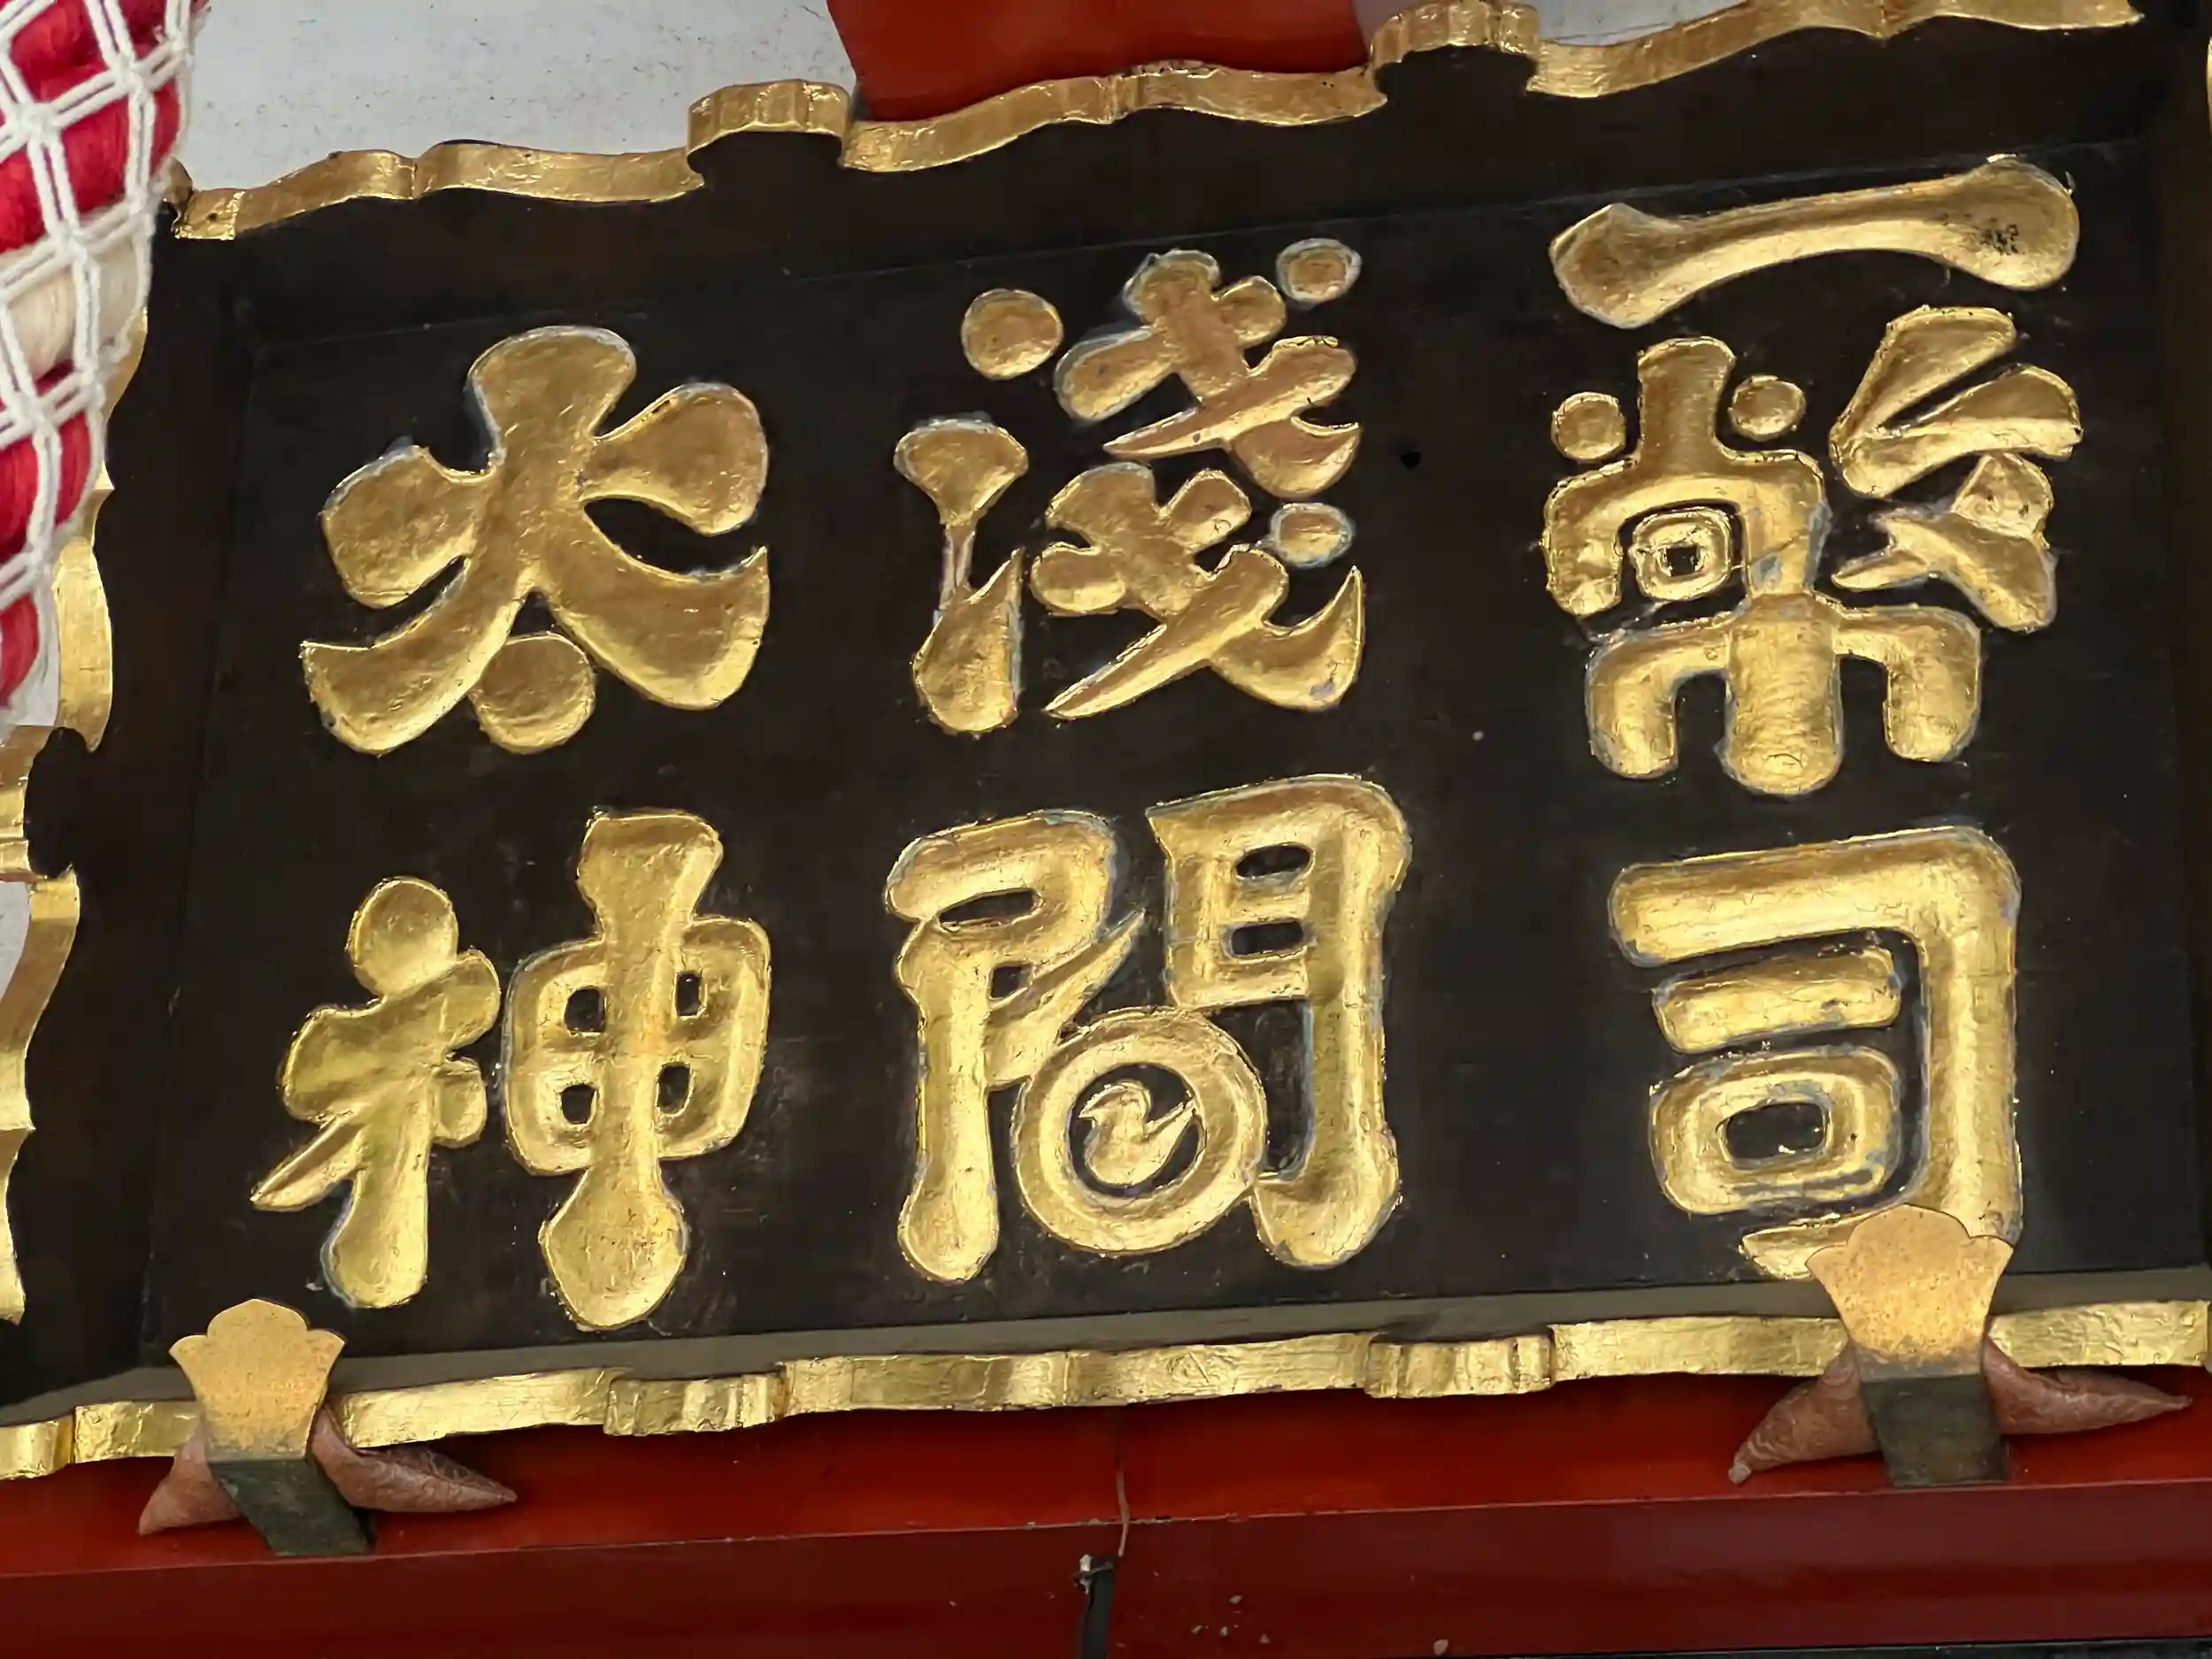 一幣司
淺間
太神